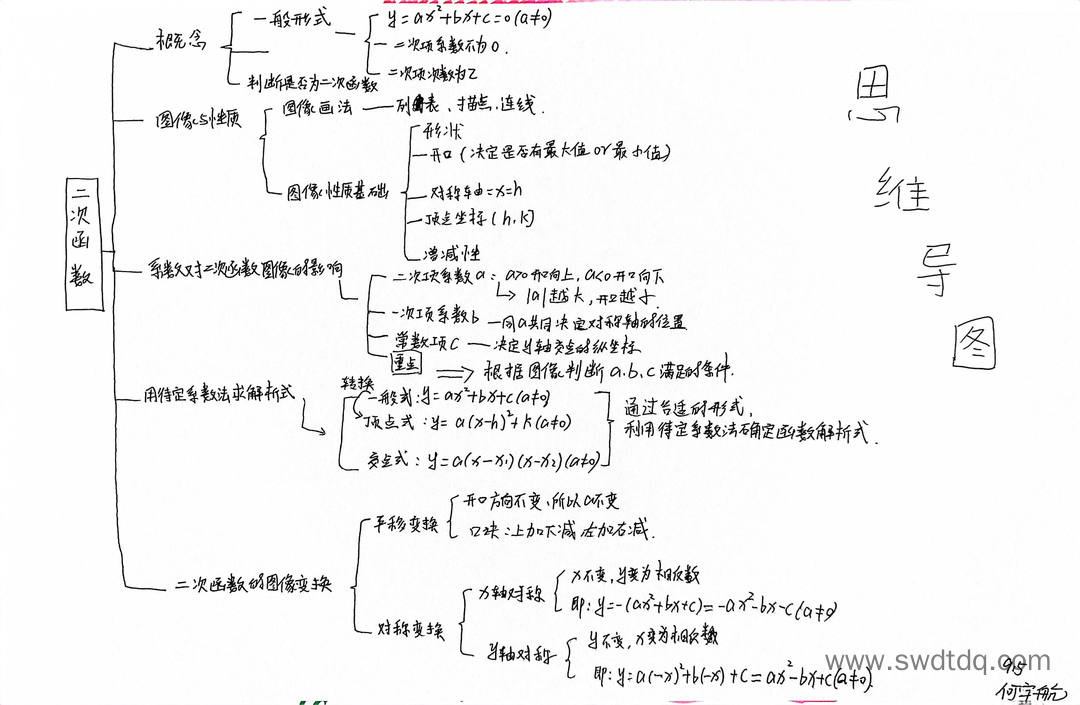 思维导图
二次函数
概念
一般形式
y=ax²+bx+c=0(a≠0)
二次项系数不为0.
二次项次数为2
判断是否为二次函数
图像与性质
图像画法
列表、描点、连线.
图像性质基础
形状
开口(决定是否有最大值or最小值)
对称轴=x=h
顶点坐标(h,k)
增减性
系数对二次函数图像的影响
二次项系数a: a>0开口向上, a<0开口向下
|a|越大,开口越小.
一次项系数b—同a共同决定对称轴的位置
常数项C—决定y轴交点的纵坐标
重点
根据图像判断a.b.c满足的条件.
用待定系数法求解析式
转换
一般式:y=ax²+bx+c(a≠0)
顶点式:y=a(x-h)²+k(a≠0)
交点式:y=a(x-x₁)(x-x₂)(a≠0)
通过合适的形式,
利用待定系数法确定函数解析式.
二次函数的图像变换
平移变换
开口方向不变,所以a不变
口诀:上加下减 左加右减.
对称变换
x轴对称
x不变,y变为相反数
即:y=-(ax²+bx+c)=-ax²-bx-c(a≠0)
y轴对称
y不变,x变为相反数
即:y=a(-x)²+b(-x)+c=ax²-bx+c(a≠0).
www.swdtdq.com
何宇航